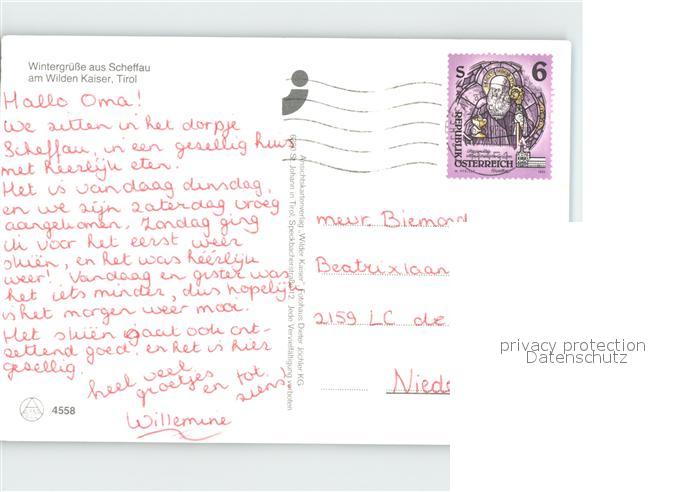 Wintergrüße aus Scheffau
am Wilden Kaiser, Tirol
Hallo Oma!
We zitten in het dorpje
Scheffau, in een gezellig huis
met heerlijk eten.
Het is vandaag dinsdag,
en we zijn zaterdag vroeg
aangekomen. Zondag ging
ik voor het eerst weer
skiën, en het was héérlijk
weer! Vandaag en gister was
het iets minder, dus hopelijk
is het morgen weer mooi.
Het skiën gaat ook ont-
zettend goed. en het is hier
gezellig.
heel veel
groetjes en tot
ziens
Willemine
4558
Ansichtskartenverlag „Wilder Kaiser“ Fotohaus Dieter Jöchler KG
6380 St. Johann in Tirol, Speckbacherstraße 12, Jede Vervielfältigung verboten
S 6
REPUBLIK
ÖSTERREICH
mevr Biemond
Beatrixlaan
2159 LC de
Nede
privacy protection
Datenschutz